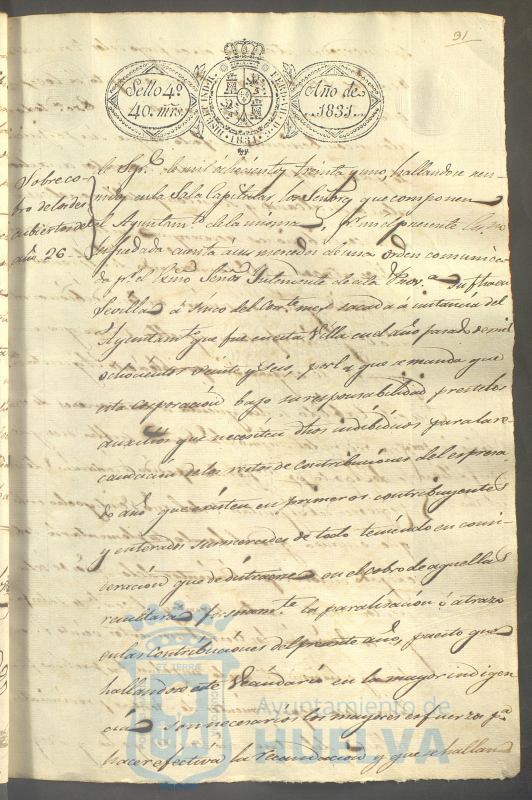 31
Sello 4º
40. mrs.
HISP. ET IND. R. FERD. VII. D. G. 1831.
Año de
1831.
Sobre co-
bro de los des-
cubiertos del
año 26
de Sepe. de mil ochocientos treinta y uno, hallandose reu-
nidos en la Sala Capitular, los Señores que componen
el Ayuntamto. de la misma, por mi el presente
fue dada cuenta á sus mercedes de una orden comunica-
da pr. el Señor Yntendente de esta Prova. su fha en
Sevilla á cinco del corrte. mes sacada á instancia del
Ayuntamto. que fue en esta Villa en el año pasado de mil
ochocientos veinte y seis, por la que se manda que
esta corporacion bajo su responsabilidad preste los
auxilios que necesiten dhos individuos para la re-
caudacion de los restos de contribuciones del espresa-
do año que existen en primeros contribuyentes
y enterados sus mercedes de todo teniendo en consi-
deracion que de entrarse en el cobro de aquellas
resultará la paralisacion ó atrazo
en las contribuciones del presente año, puesto que
hallandose este Vecindario en la mayor indigen-
cia son necesarios los mayores esfuerzos pa.
hacer efectiva la recaudacion y que se halland
ET TERRÆ
Ayuntamiento de
HUELVA